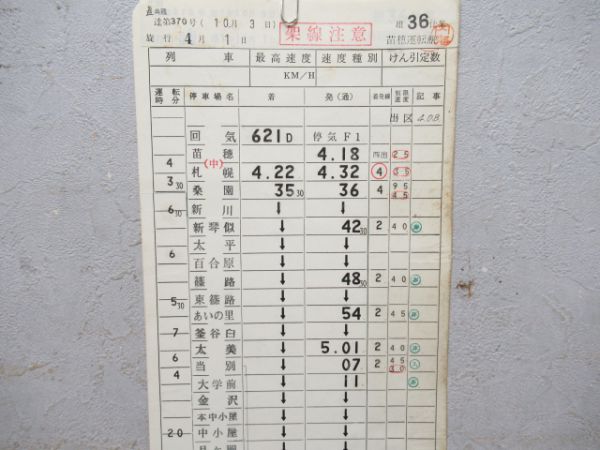 達第370号( 10月 3日)
施行 4月 1日
架線注意
36
苗穂運転所
列車 最高速度 速度種別 けん引定数
KM/H
運転時分 停車場名 着 発(通) 着発線 制限速度 記事
出区 4.08
回気 621D 停気 F1
苗穂 4.18 25
4 (中)
札幌 4.22 4.32 4 35
3 30
桑園 35 30 36 4 95 45
6 30
新川 ↓ ↓
新琴似 ↓ 42 30 2 40
太平 ↓ ↓
6
百合原 ↓ ↓
篠路 ↓ 48 30 2 40
東篠路 ↓ ↓
5 30
あいの里 ↓ 54 2 45
7
釜谷臼 ↓ ↓
太美 ↓ 5.01 2 40
6
当別 ↓ 07 2 45
4
大学前 ↓ 11
金沢 ↓ ↓
本中小屋 ↓ ↓
20
中小屋 ↓ ↓